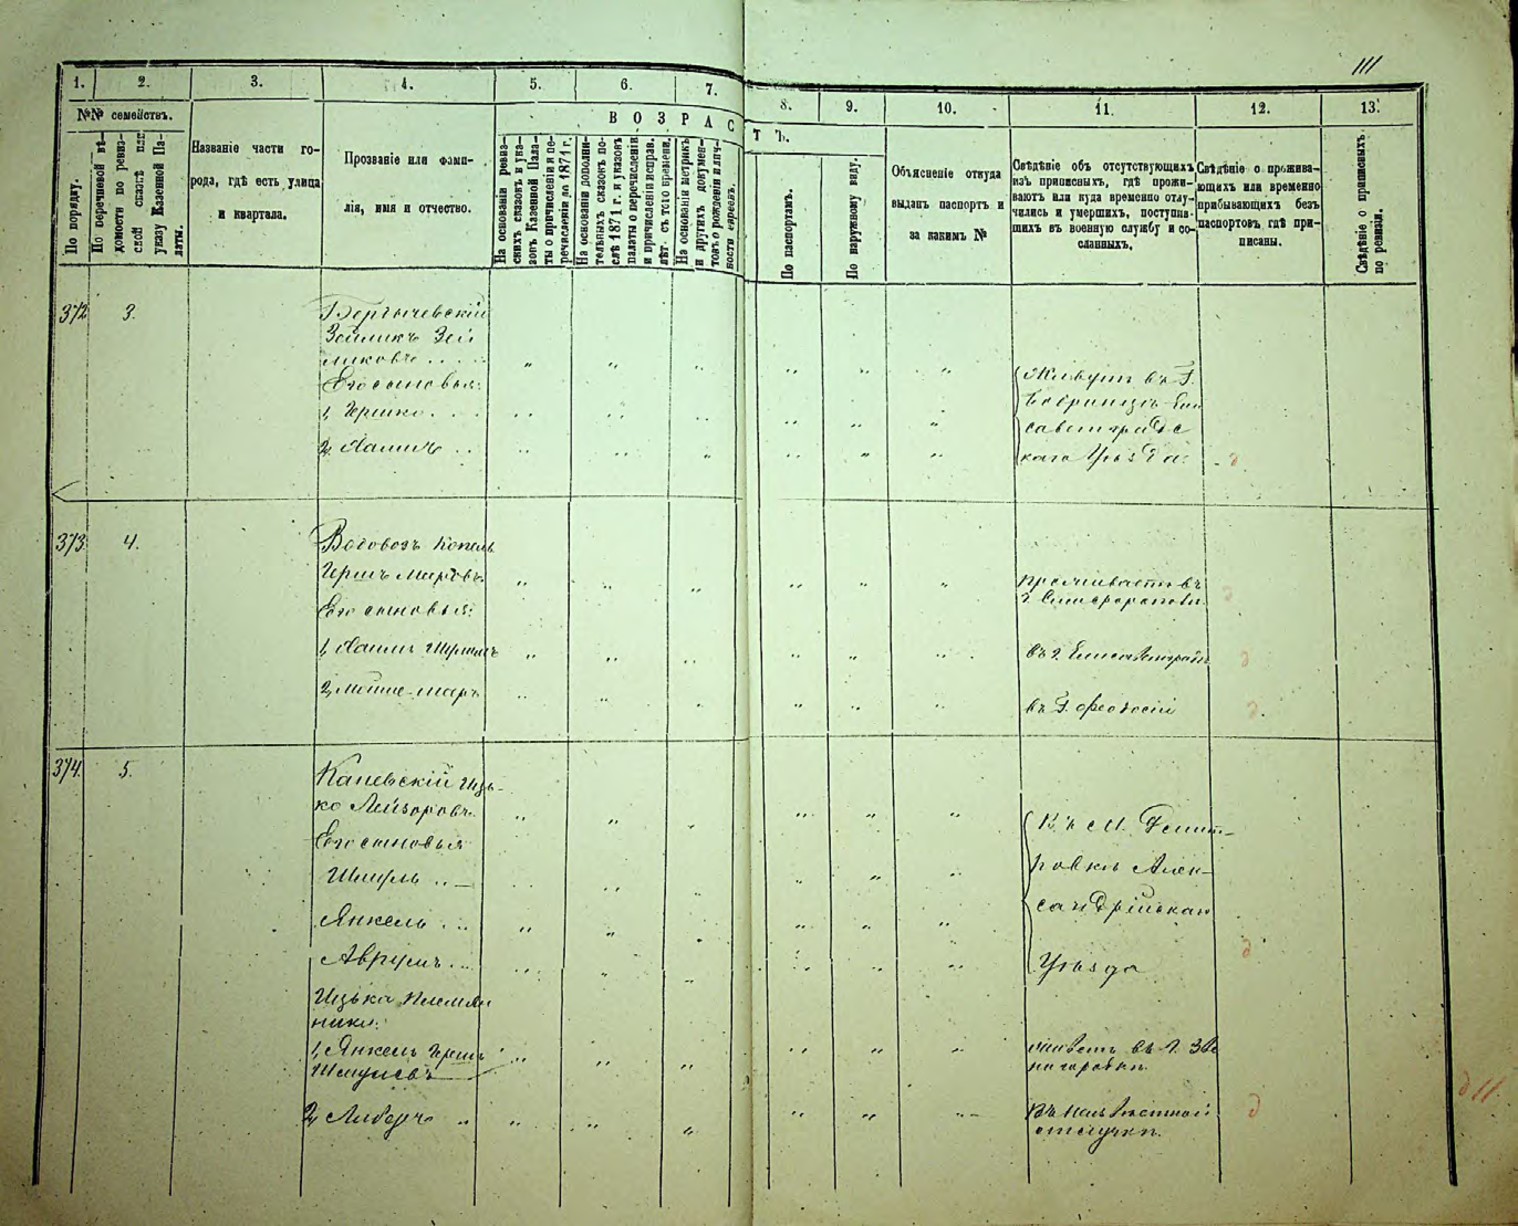 111
1. 2. 3. 4. 5. 6. 7. 8. 9. 10. 11. 12. 13.
№№ семействъ.
По порядку.
По перечневой вѣ-
домости по ревиз-
ской сказкѣ или
указу Казенной Па-
латы.
Названіе части го-
рода, гдѣ есть улица
и квартала.
Прозваніе или фами-
лія, имя и отчество.
ВОЗРАСТЪ.
На основаніи ревиз-
скихъ сказокъ и ука-
зовъ Казенной Пала-
ты о причисленіи и пе-
речисленіи до 1871 г.
На основаніи дополни-
тельныхъ сказокъ по-
слѣ 1871 г. и указовъ
палаты о перечисленіи
и причисленіи исправ.
лѣт. съ того времени.
На основаніи метрикъ
и другихъ докумен-
товъ о рожденіи и лич-
ности евреевъ.
По паспортамъ.
По наружному виду.
Объясненіе откуда
выданъ паспортъ и
за какимъ №
Свѣдѣніе объ отсутствующихъ
изъ приписныхъ, гдѣ прожи-
ваютъ или куда временно отлу-
чились и умершихъ, поступив-
шихъ въ военную службу и со-
сланныхъ.
Свѣдѣніе о прожива-
ющихъ или временно
прибывающихъ безъ
паспортовъ, гдѣ при-
писаны.
Свѣдѣніе о приписныхъ
по ревизіи.
372 3.
Зейликъ Зей
ликовъ
Его сыновья:
1, Гершко
2, Хаимъ
Живутъ въ Г.
саветградс
каго Уѣзда.
373 4.
Водовозъ Копель
Гершъ Мееровъ
Его сыновья:
1, Хаимъ Шулимъ
2, Мойше-Меръ
Проживаетъ въ
г. Симферополѣ
въ г. Елисаветградѣ
въ Г. Феодосіи
374. 5.
Каневскій Ицъ-
ко Лейзоровъ
Его сыновья
Шмуль
Янкель
Аврумъ
Въ м. Дмит-
ровкѣ Алек-
сандрійскаго
Уѣзда
Ицька Племян
ники:
1, Янкель Гершъ
Шмулевъ
живетъ въ г. Зве
нигородкѣ
2, Либеръ
Въ неизвѣстной
отлучкѣ.